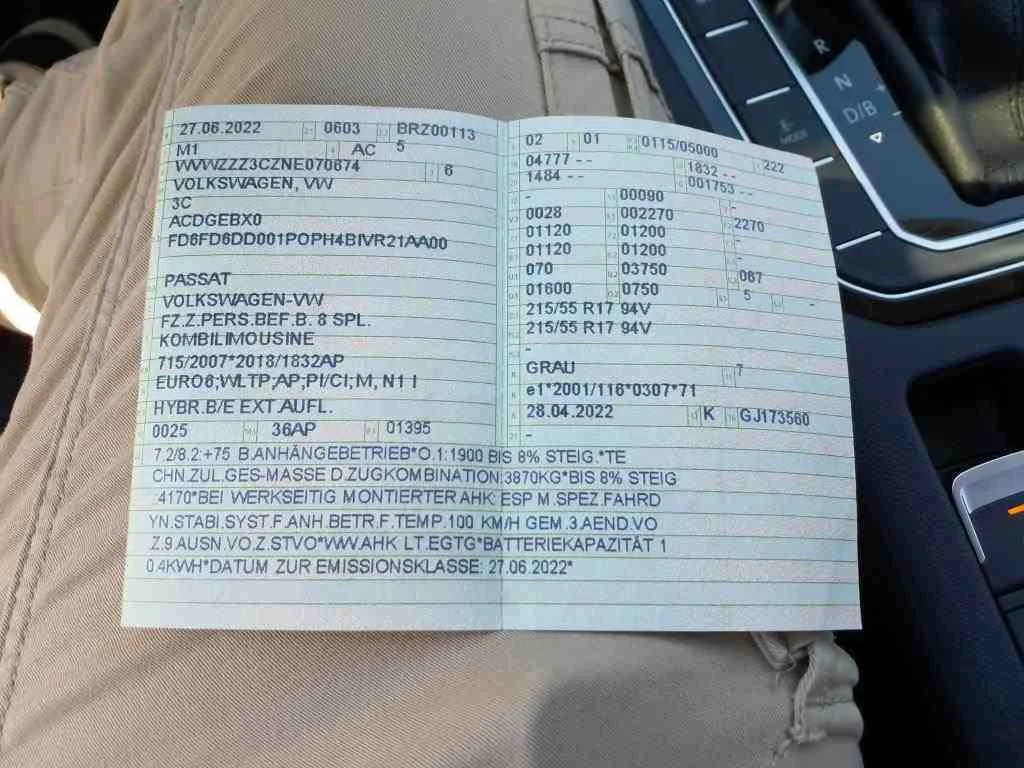 27.06.2022 0603 BRZ00113
M1 AC 5
WVWZZZ3CZNE070674 6
VOLKSWAGEN, VW
3C
ACDGEBX0
FD6FD6DD001POPH4BIVR21AA00
PASSAT
VOLKSWAGEN-VW
FZ.Z.PERS.BEF.B. 8 SPL.
KOMBILIMOUSINE
715/2007*2018/1832AP
EURO6;WLTP;AP;PI/CI; M, N1 I
HYBR.B/E EXT.AUFL.
0025 36AP 01395
02 01 0115/05000 222
04777 - - 1832 - -
1484 - - 001753 - -
- 00090 -
0028 002270 2270
01120 01200 -
01120 01200 -
070 03750 087
01600 0750 5 -
215/55 R17 94V
215/55 R17 94V
-
GRAU 7
e1*2001/116*0307*71
28.04.2022 K GJ173560
-
7.2/8.2:+75 B.ANHÄNGEBETRIEB*O.1:1900 BIS 8% STEIG.*TE
CHN.ZUL.GES-MASSE D.ZUGKOMBINATION:3870KG*BIS 8% STEIG
.4170*BEI WERKSEITIG MONTIERTER AHK: ESP M.SPEZ.FAHRD
YN.STABI.SYST.F.ANH.BETR.F.TEMP.100 KM/H GEM.3.AEND.VO
Z.9.AUSN.VO.Z.STVO*VW.AHK LT.EGTG*BATTERIEKAPAZITÄT 1
0.4KWH*DATUM ZUR EMISSIONSKLASSE: 27.06.2022*
R
N
D/B
+
MODE